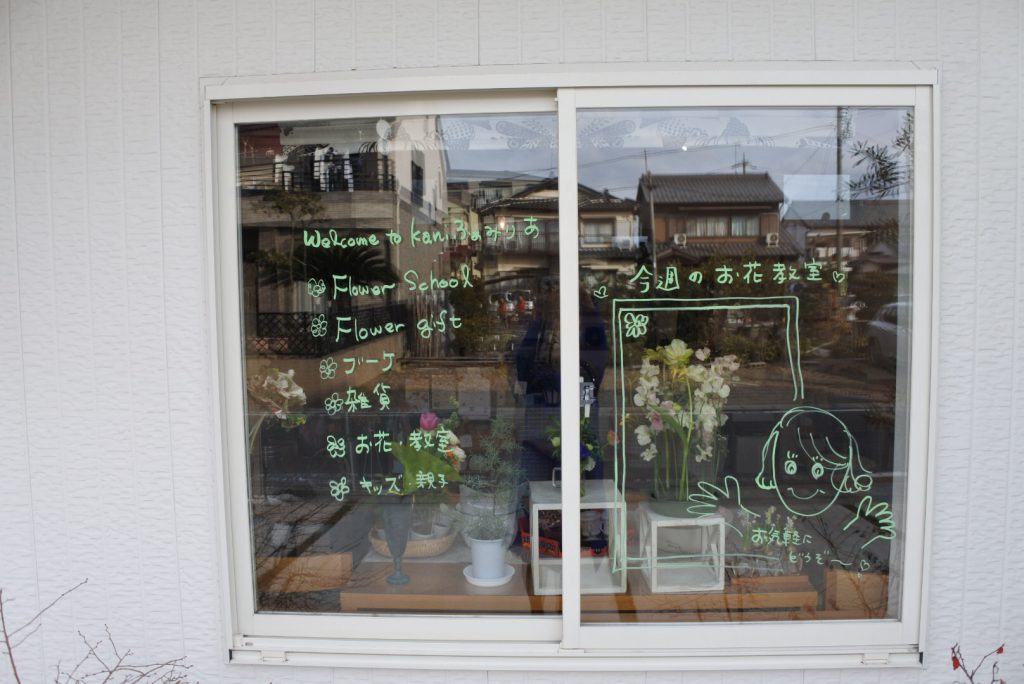 Welcome to kani.ふぁみりあ
Flower School
Flower gift
ブーケ
雑貨
お花・教室
キッズ・親子
今週のお花教室
お気軽に
どうぞ〜